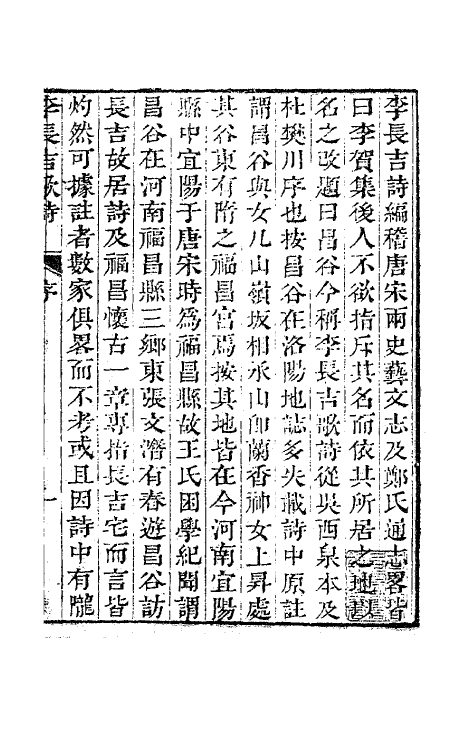 李長吉詩編稽唐宋兩史藝文志及鄭氏通志畧皆
曰李賀集後人不欲指斥其名而依其所居之地以
名之改題曰昌谷今稱李長吉歌詩從吳西泉本及
杜樊川序也按昌谷在洛陽地誌多失載詩中原註
謂昌谷與女几山嶺坂相承山卽蘭香神女上昇處
其谷東有隋之福昌宮焉按其地皆在今河南宜陽
縣中宜陽于唐宋時爲福昌縣故王氏困學紀聞謂
昌谷在河南福昌縣三鄉東張文潛有春遊昌谷訪
長吉故居詩及福昌懷古一章專指長吉宅而言皆
灼然可據註者數家俱畧而不考或且因詩中有隴
李長吉歌詩 序 一